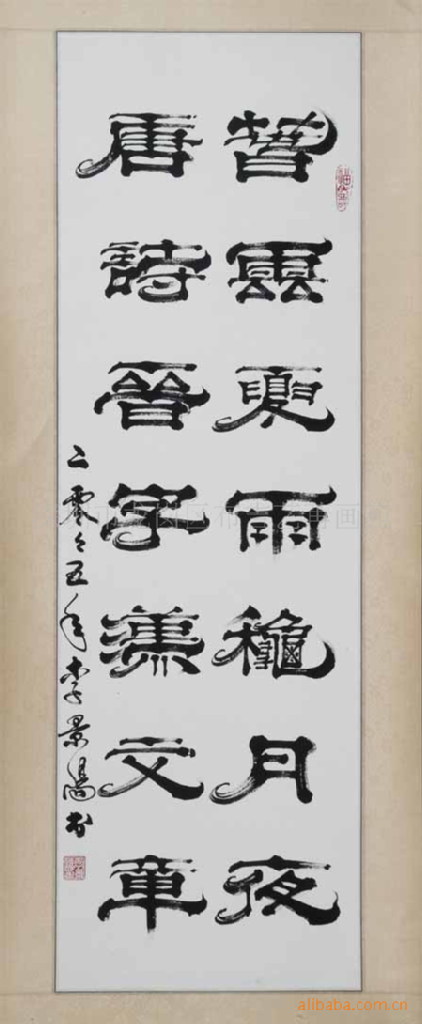 春雲夏雨龝月夜
唐詩晉字漢文章
二零々五年李景陽书
alibaba.com.cn